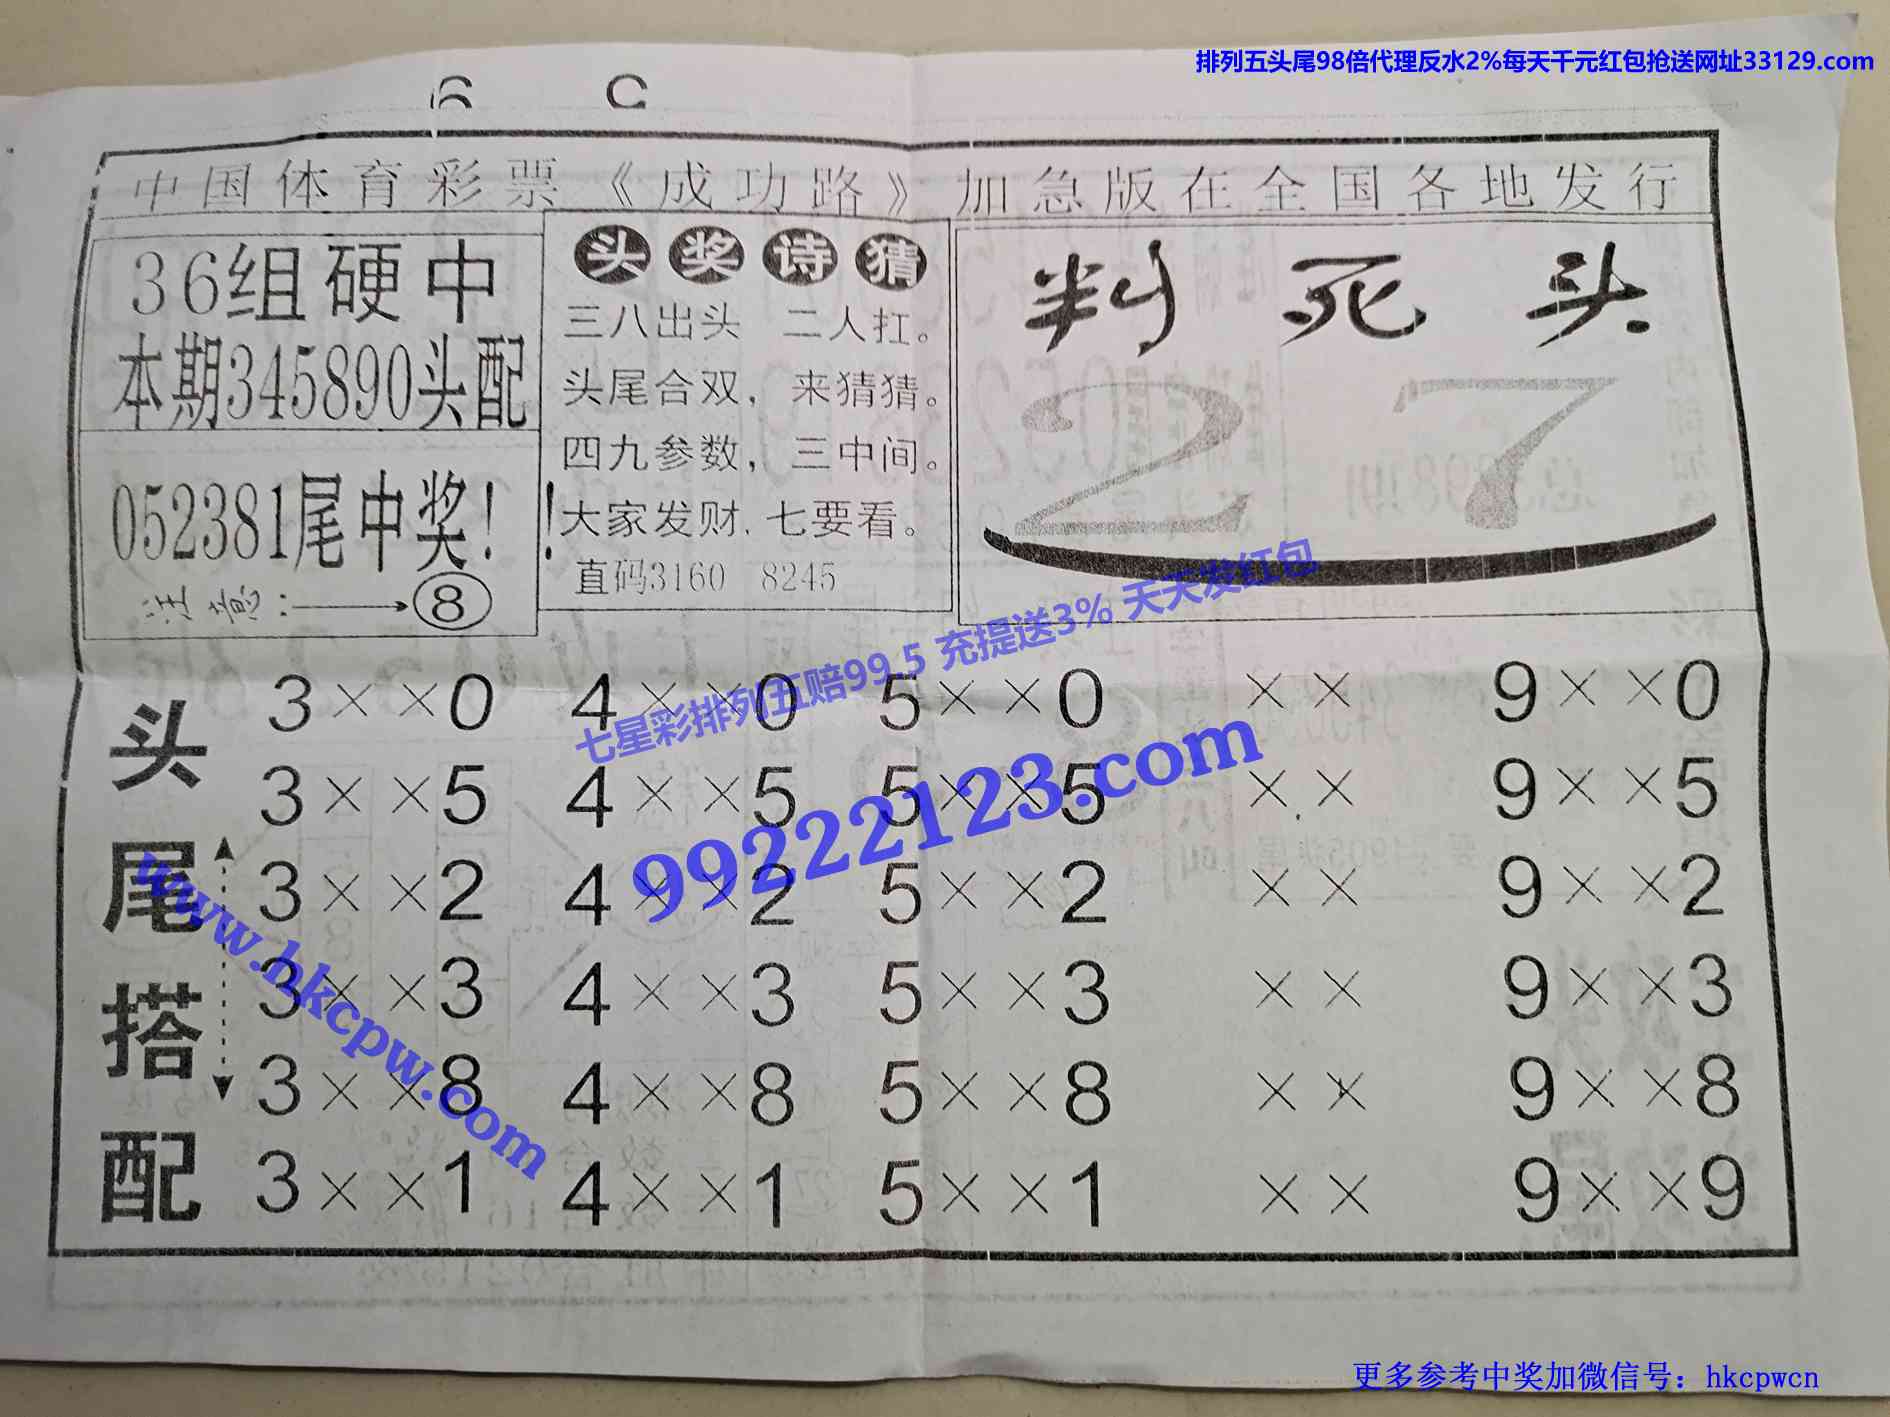 排列五头尾98倍代理反水2%每天千元红包抢送网址33129.com
中国体育彩票《成功路》加急版在全国各地发行
36组硬中
本期345890头配
052381尾中奖！！
注意：→⑧
头奖诗猜
三八出头 二人扛。
头尾合双，来猜猜。
四九参数，三中间。
大家发财，七要看。
直码3160 8245
判死头
2 7
七星彩排列五赔99.5 充提送3% 天天发红包
99222123.com
www.hkcpw.com
头尾搭配
3××0 4××0 5××0 ×× 9××0
3××5 4××5 5××5 ×× 9××5
3××2 4××2 5××2 ×× 9××2
3××3 4××3 5××3 ×× 9××3
3××8 4××8 5××8 ×× 9××8
3××1 4××1 5××1 ×× 9××9
更多参考中奖加微信号：hkcpwcn